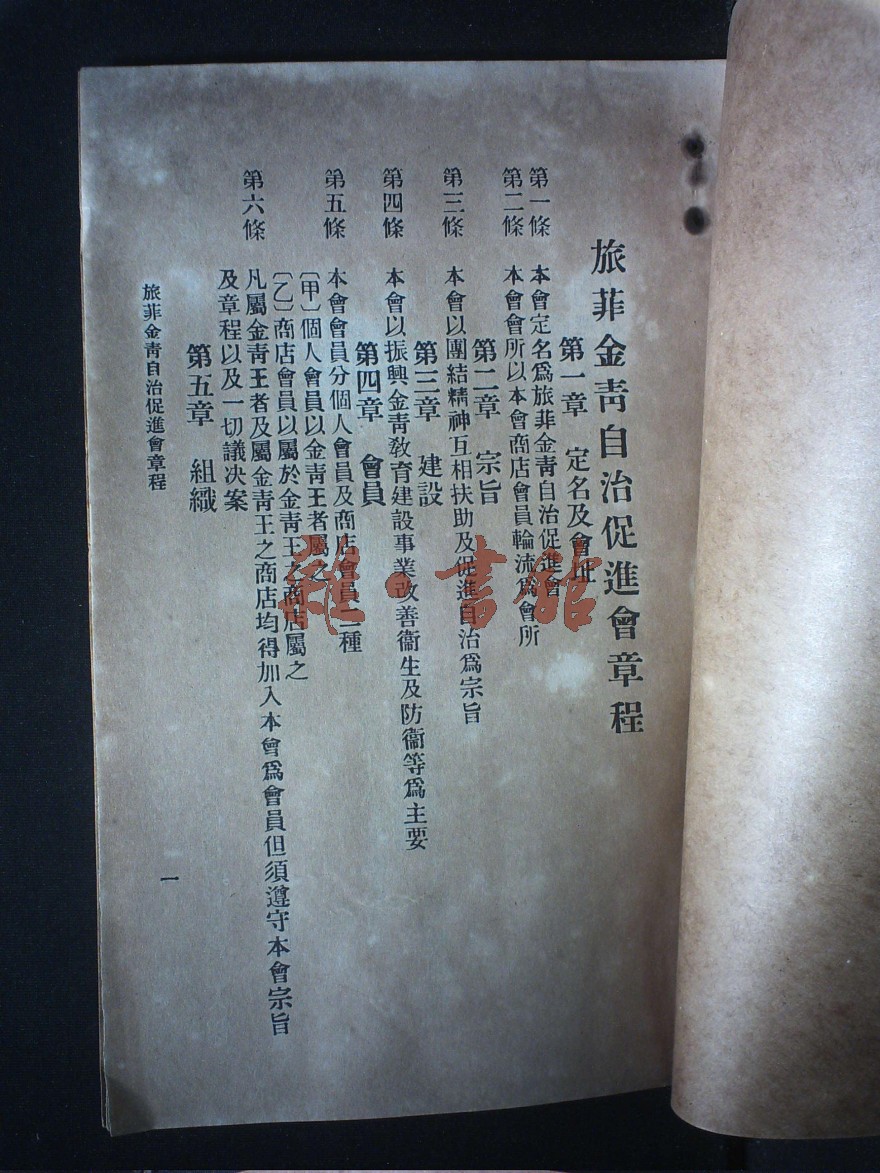 旅菲金靑自治促進會章程
第一章 定名及會址
第一條 本會定名爲旅菲金靑自治促進會
第二條 本會會所以本會商店會員輪流爲會所
第二章 宗旨
第三條 本會以團結精神互相扶助及促進自治爲宗旨
第三章 建設
第四條 本會以振興金靑敎育建設事業改善衞生及防衞等爲主要
第四章 會員
第五條 本會會員分個人會員及商店會員二種
〔甲〕個人會員以金靑王者屬之
〔乙〕商店會員以屬於金靑王之商店屬之
第六條 凡屬金靑王者及屬金靑王之商店均得加入本會爲會員但須遵守本會宗旨
及章程以及一切議决案
第五章 組織
旅菲金靑自治促進會章程
一
雜·書館